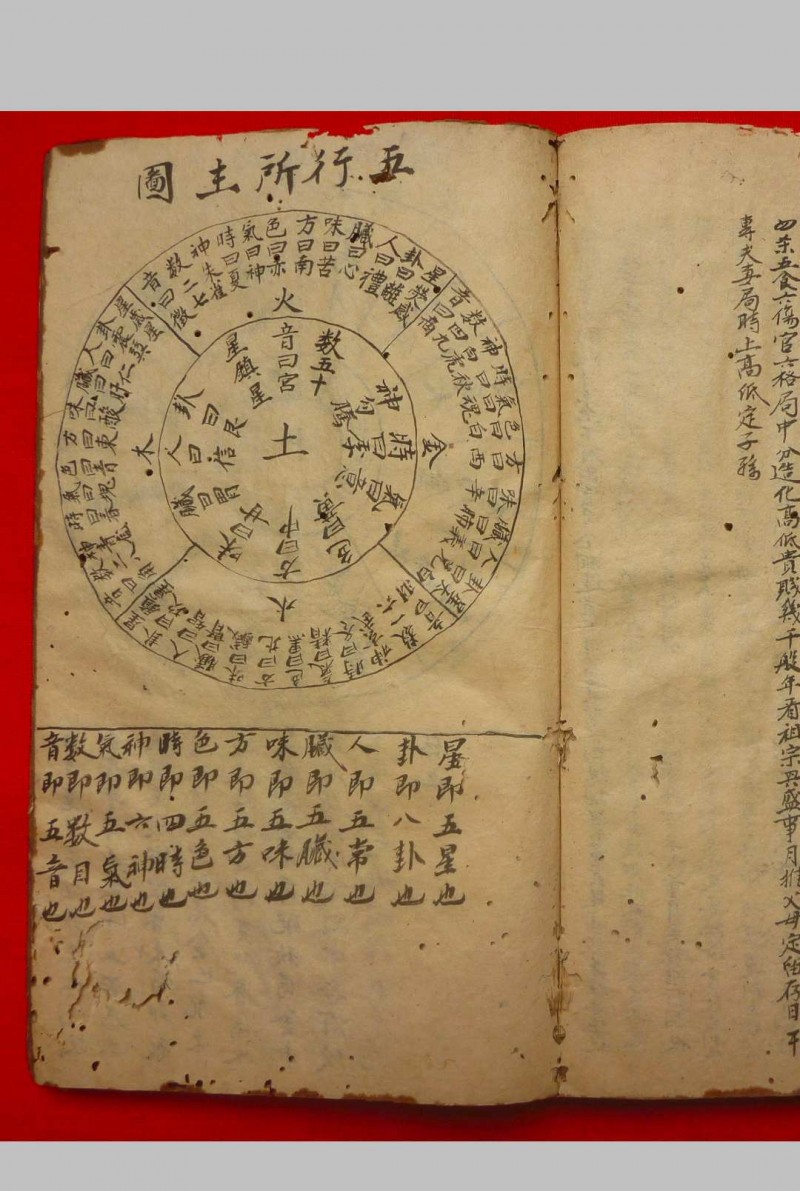 專夫妻局時上高低定子孫
五食六傷官六格局中分造化高低貴賤幾千般年看祖宗興盛事月推父母定留存日干
五行所主圖
火
星曰熒惑
卦曰離
人曰禮
臟曰心
味曰苦
方曰南
色曰赤
氣曰神
時曰夏
神朱雀
數曰二七
音曰徵
金
音曰商
數曰四九
神白虎
時曰秋
氣曰魂
色曰白
方曰西
味曰辛
臟曰肺
人曰義
卦曰兌
星太白
水
音曰
數一六
神
時曰
氣曰精
色曰黑
方曰北
味曰鹹
臟曰腎
人曰智
卦曰
星
木
音曰角
數
神青
時曰春
氣曰魂
色曰青
方曰東
味曰酸
臟曰肝
人曰仁
卦曰震
星歲星
土
音曰宮
數五十
神勾
時曰季
氣曰意
色曰黃
方曰中
味曰甘
臟曰胃
人曰信
卦曰
星鎮星
星即五星也
卦即八卦也
人即五常也
臟即五臟也
味即五味也
方即五方也
色即五色也
時即四時也
神即六神也
氣即五氣也
數即數目也
音即五音也